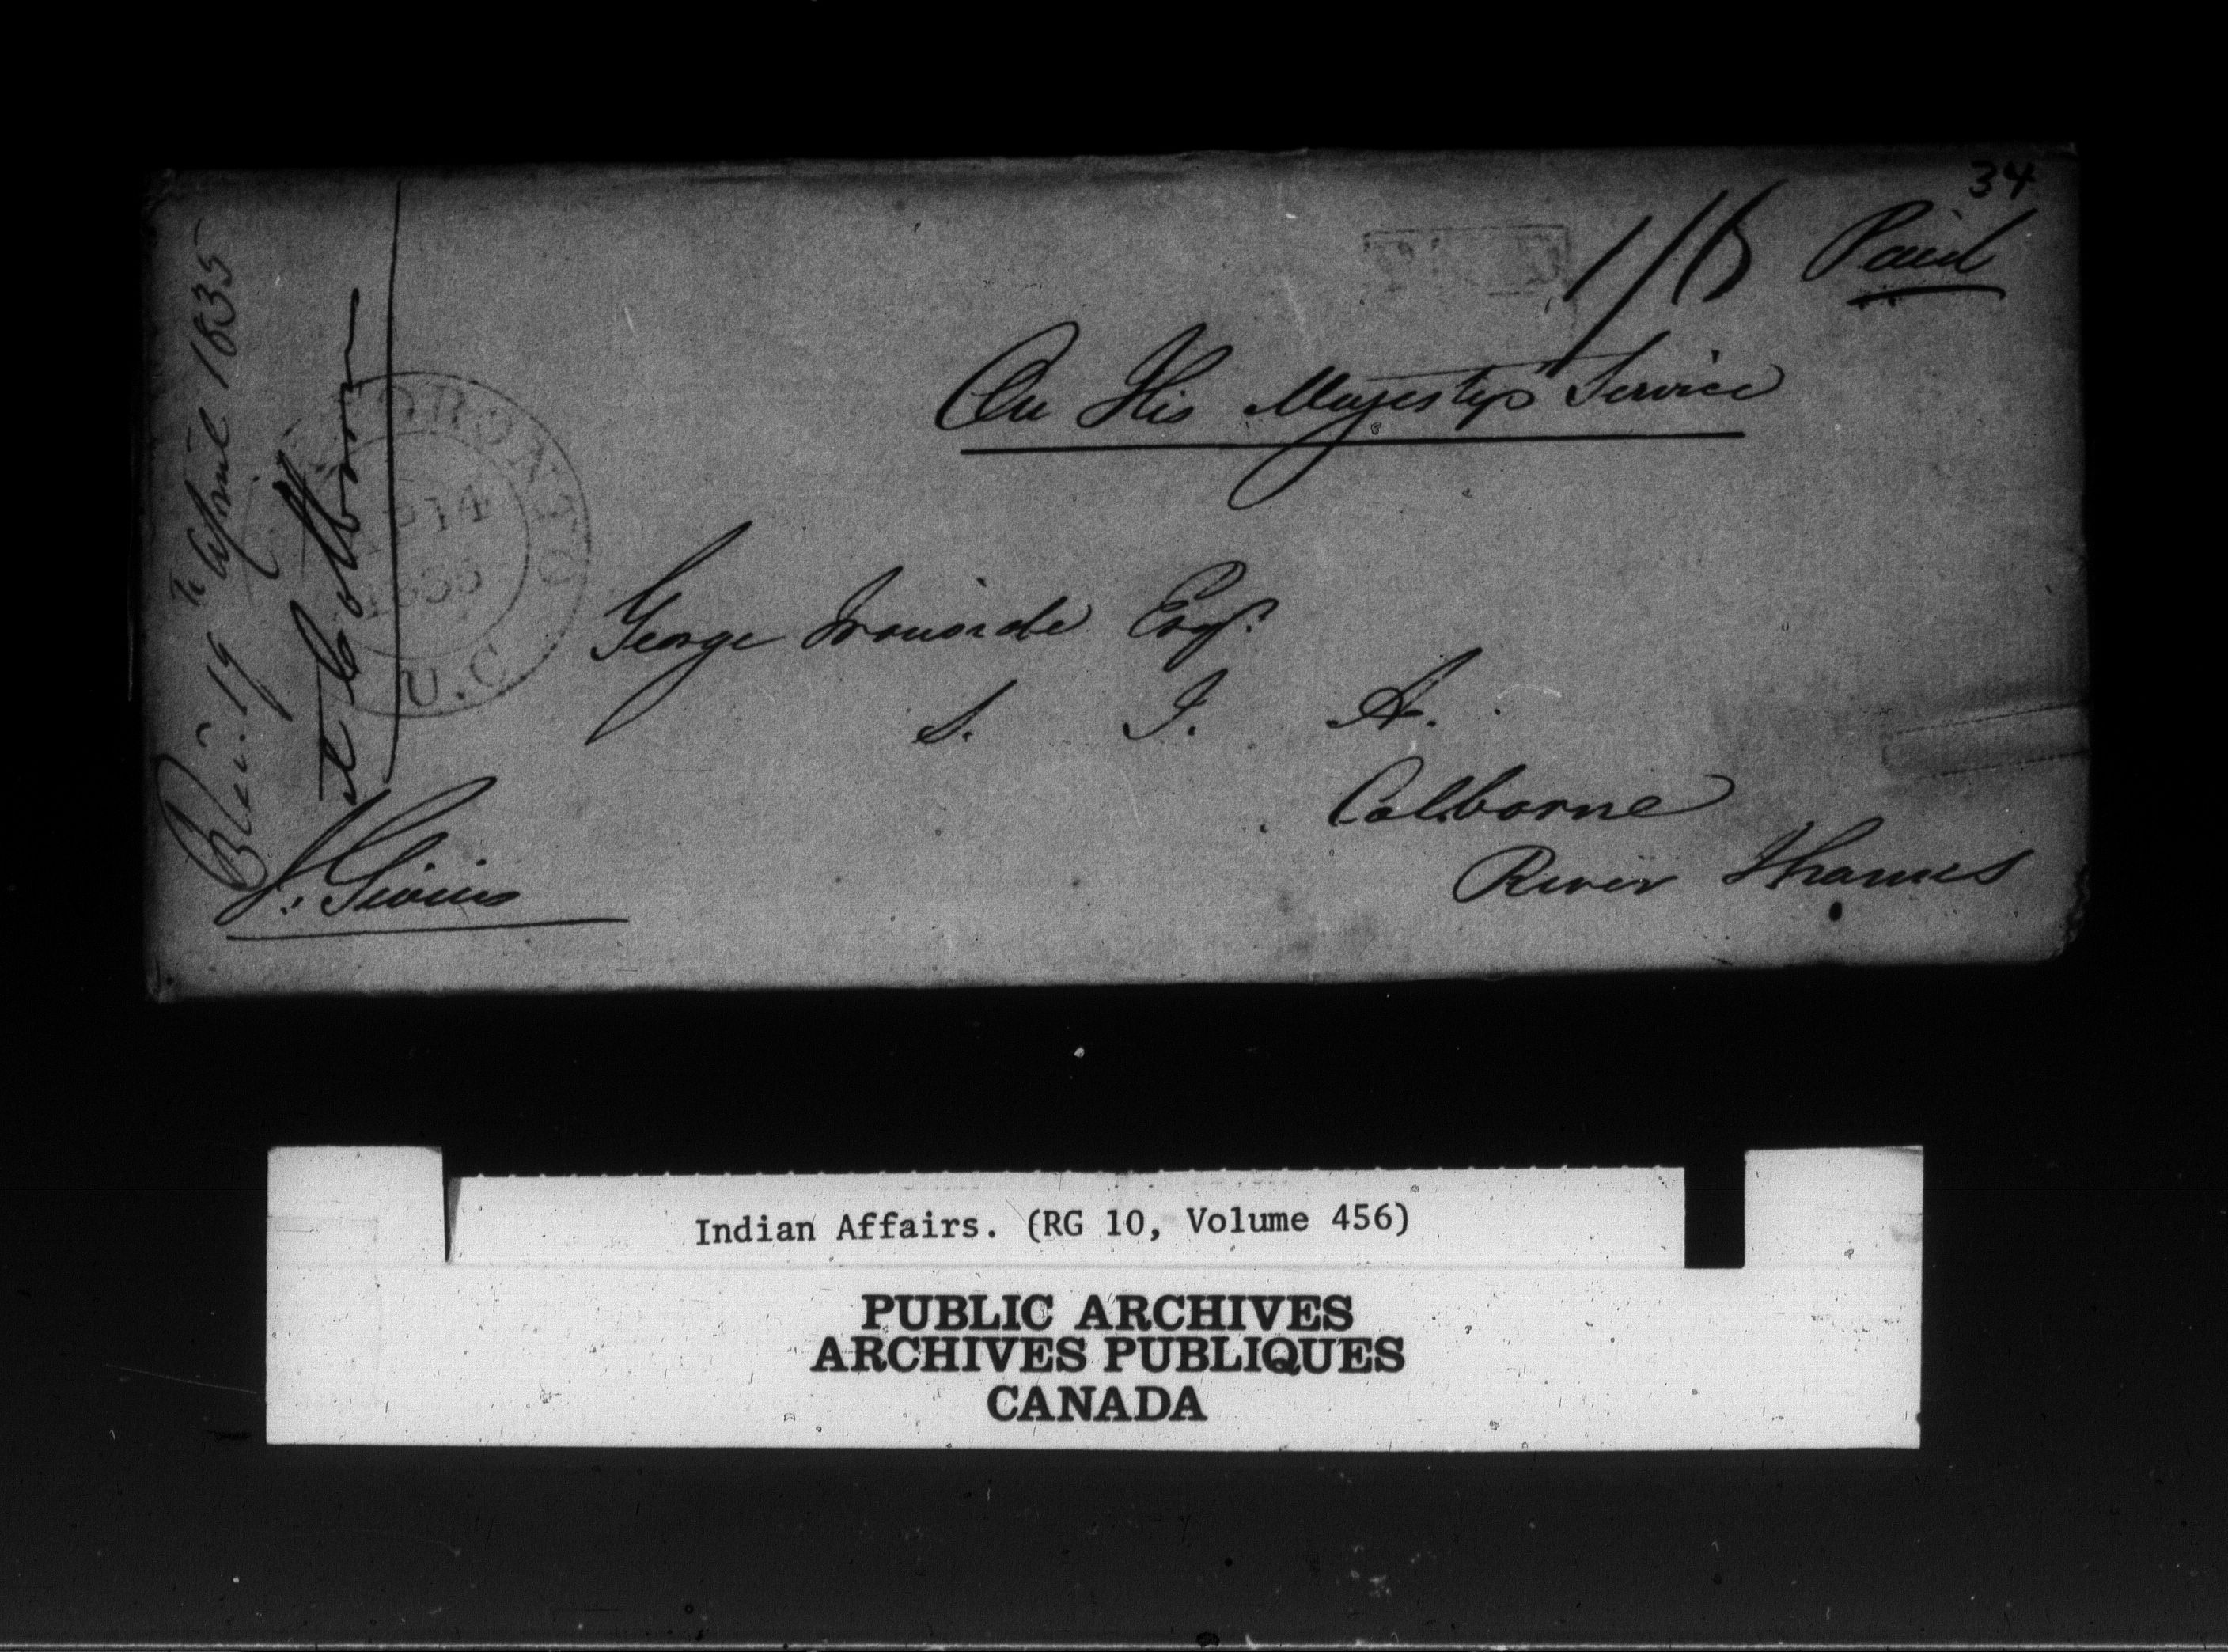 34
1/6 Paid
On His Majestys Service
George Ironside Esqr.
S. I. A.
Colborne
River Thames
J. Givins
Rec. 19th April 1835
at Colborne
TORONTO
14
1835
U.C
Indian Affairs. (RG 10, Volume 456)
PUBLIC ARCHIVES
ARCHIVES PUBLIQUES
CANADA